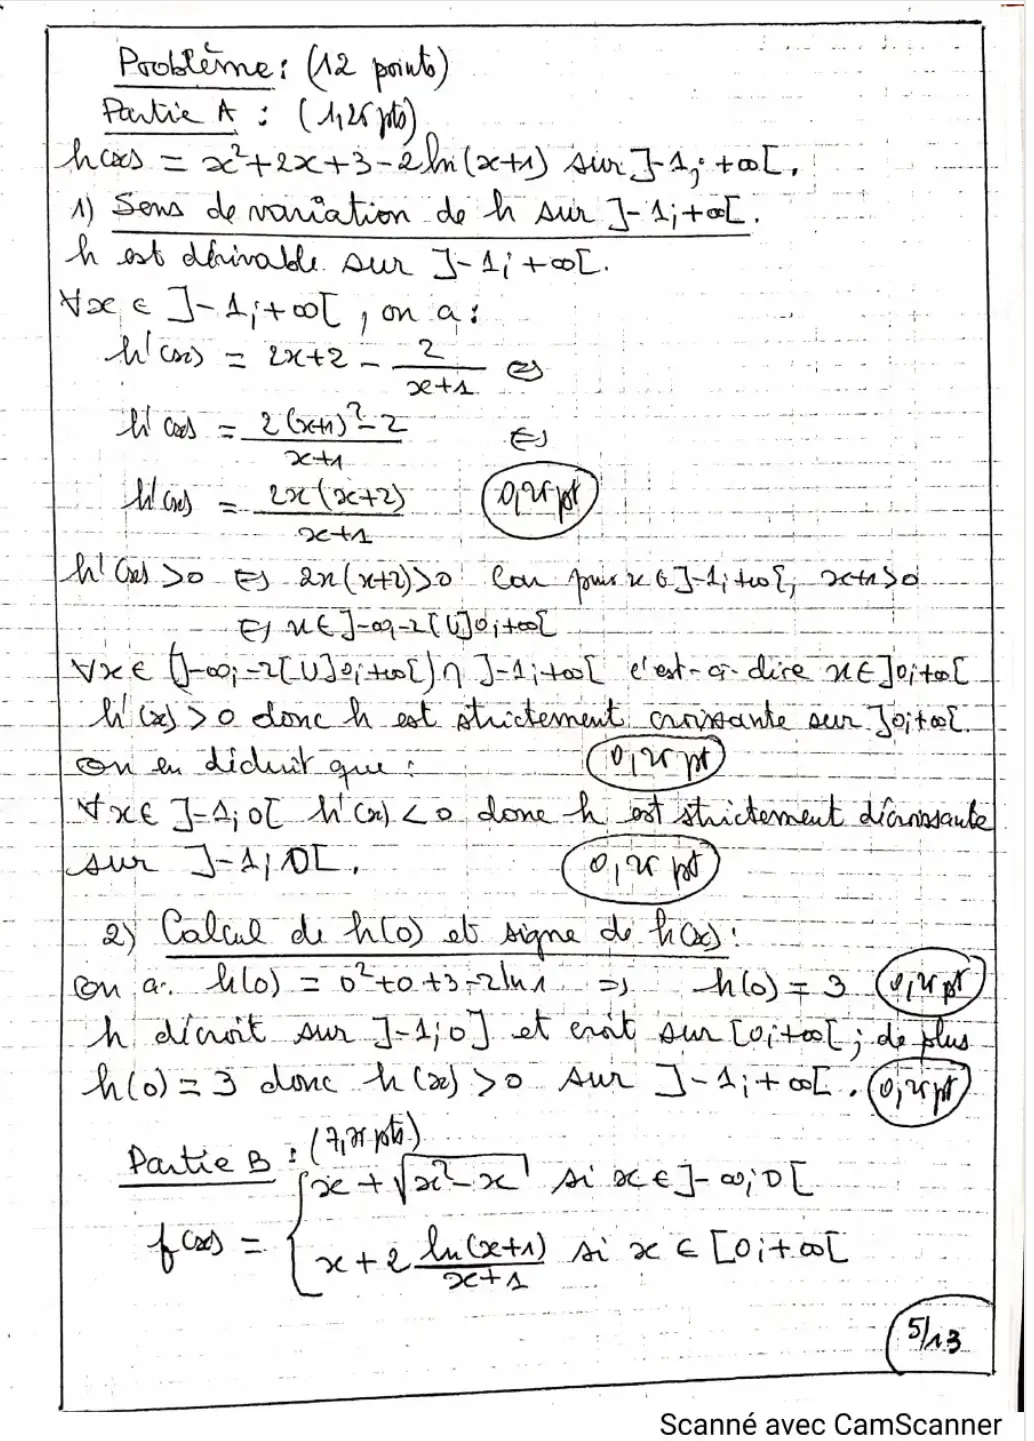 Problème : (12 points)
Partie A : (1,25 pts)
h(x) = x² + 2x + 3 - 2 ln(x+1) sur ]-1; +∞[.
1) Sens de variation de h sur ]-1; +∞[.
h est dérivable sur ]-1; +∞[.
∀x ∈ ]-1; +∞[, on a :
h'(x) = 2x+2 - 2/(x+1) ⇔
h'(x) = (2(x+1)² - 2)/(x+1) ⇔
h'(x) = 2x(x+2)/(x+1) 0,25 pt
h'(x) > 0 ⇔ 2x(x+2) > 0 Car pour x ∈ ]-1; +∞[, x+1 > 0
⇔ x ∈ ]-∞; -2[ U ]0; +∞[
∀x ∈ (]-∞; -2[ U ]0; +∞[) ∩ ]-1; +∞[ c'est-à-dire x ∈ ]0; +∞[
h'(x) > 0 donc h est strictement croissante sur ]0; +∞[.
On en déduit que : 0,25 pt
∀x ∈ ]-1; 0[ h'(x) < 0 donc h est strictement décroissante
sur ]-1; 0[. 0,25 pt
2) Calcul de h(0) et signe de h(x) :
On a. h(0) = 0² + 0 + 3 - 2 ln 1 ⇒ h(0) = 3 0,25 pt
h décroit sur ]-1; 0] et croit sur [0; +∞[ ; de plus
h(0) = 3 donc h(x) > 0 sur ]-1; +∞[. 0,25 pt
Partie B : (7,25 pts)
f(x) = { x + √(x² - x) si x ∈ ]-∞; 0[
x + 2 ln(x+1)/(x+1) si x ∈ [0; +∞[
5/13
Scanné avec CamScanner